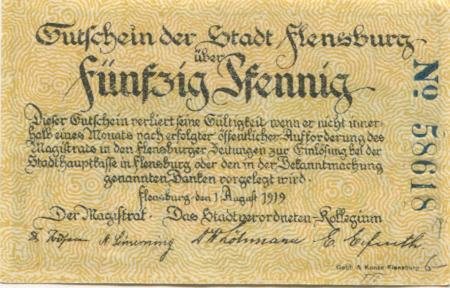 Gutschein der Stadt Flensburg
über
Fünfzig Pfennig
Dieser Gutschein verliert seine Gültigkeit wenn er nicht inner-
halb eines Monats nach erfolgter öffentlicher Aufforderung des
Magistrats in den Flensburger Zeitungen zur Einlösung bei der
Stadthauptkasse in Flensburg oder den in der Bekanntmachung
genannten Banken vorgelegt wird.
Flensburg den 1 August 1919
Der Magistrat. Das Stadtverordneten-Kollegium
Nº 58618
Gebr. A Konze Flensburg